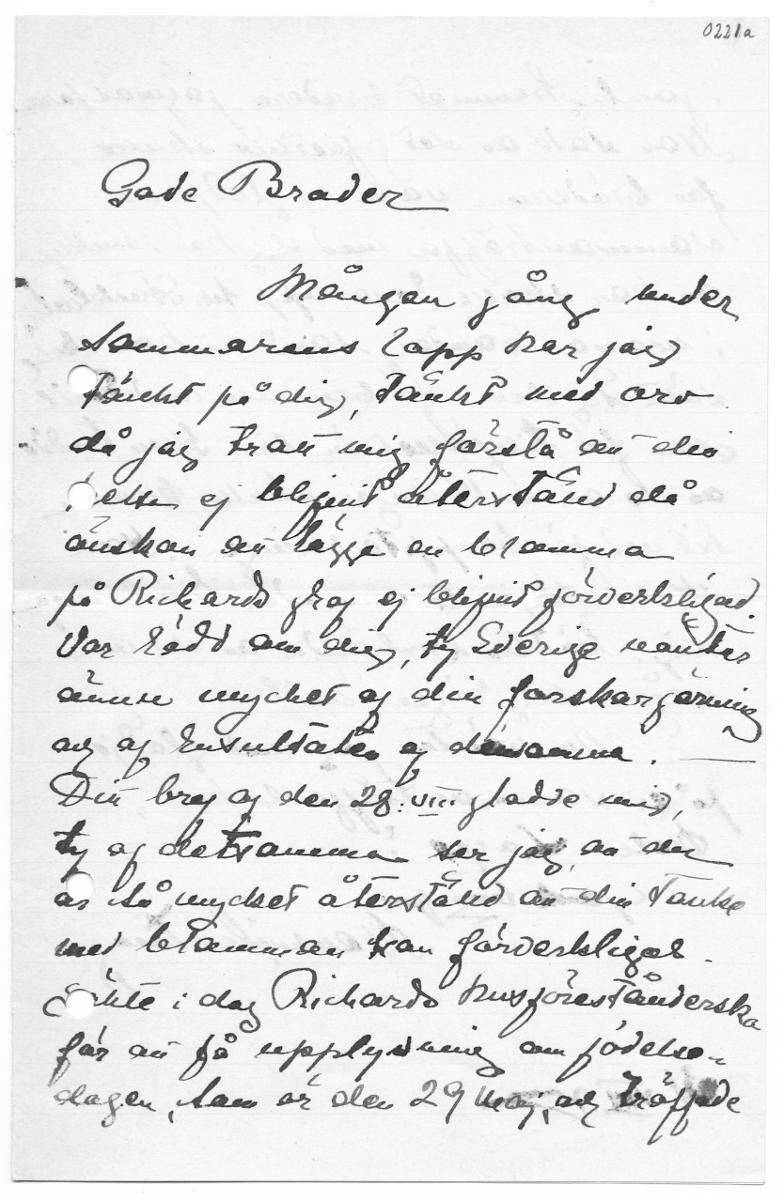 0221a
Gode Broder
Mången gång under
sommarens lopp har jag
tänkt på dig, tänkt med oro
då jag trott mig förstå att din
hälsa ej blifvit återstäld då
önskan att lägga en blomma
på Richards graf ej blifvit förverkligad.
Var rädd om dig, ty Sverige väntar
ännu mycket af din forskargärning
och af resultaten af densamma. —
Ditt bref af den 28.VIII gladde mig,
ty af detsamma ser jag att du
är så mycket återstäld att din tanke
med blomman kan förverkligas.
Sökte i dag Richards husföreståndarska
för att få upplysning om födelse-
dagen, som är den 29 Maj, och träffade